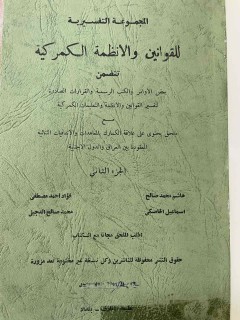 المجموعة التفسيرية
للقوانين والانظمة الكمركية
تتضمن
بعض الاوامر والكتب الرسمية والقرارات الصادرة
لتفسير القوانين والانظمة والتعليمات الكمركية
مع
ملحق يحتوي على علاقة الكمارك بالمعاهدات والاتفاقيات التالية
المعقودة بين العراق والدول الاجنبية
الجزء الثاني
هاشم محمد صالح
فؤاد احمد مصطفى
اسماعيل الخاصكي
محمد صالح الدجيل
اطلب الملحق مجانا مع الكتاب
حقوق النشر محفوظة للناشرين وكل نسخة غير مختومة تعد مزورة